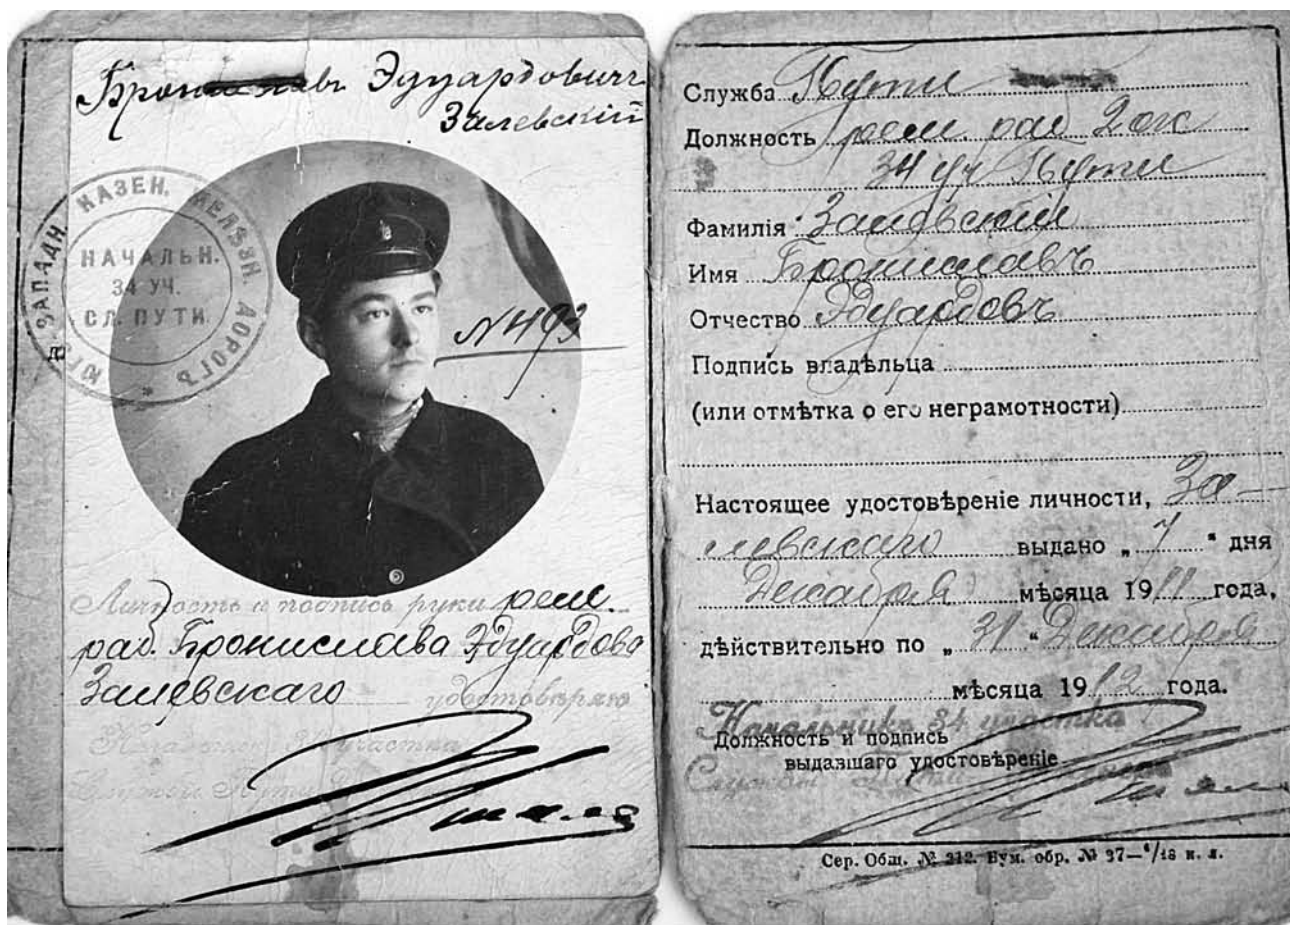 Брониславъ Эдуардовичъ
Залевскій
ЮГО-ЗАПАДН. КАЗЕН. ЖЕЛѢЗН. ДОРОГЪ
НАЧАЛЬН.
34 УЧ.
СЛ. ПУТИ
№ 493
Личность и подпись руки рем.
раб. Бронислава Эдуардова
Залевскаго удостовѣряю
Начальникъ 34 участка
Службы Пути
Служба Пути
Должность рем. раб. 2 ок
34 уч. Пути
Фамилія Залевскій
Имя Брониславъ
Отчество Эдуардовъ
Подпись владѣльца
(или отмѣтка о его неграмотности)
Настоящее удостовѣреніе личности, За-
левскаго выдано „ 7 “ дня
Декабря мѣсяца 1911 года,
дѣйствительно по „ 31 “ Декабря
мѣсяца 1912 года.
Начальникъ 34 участка
Должность и подпись
выдавшаго удостовѣреніе
Службы Пути
Сер. Общ. № 212. Бум. обр. № 37—